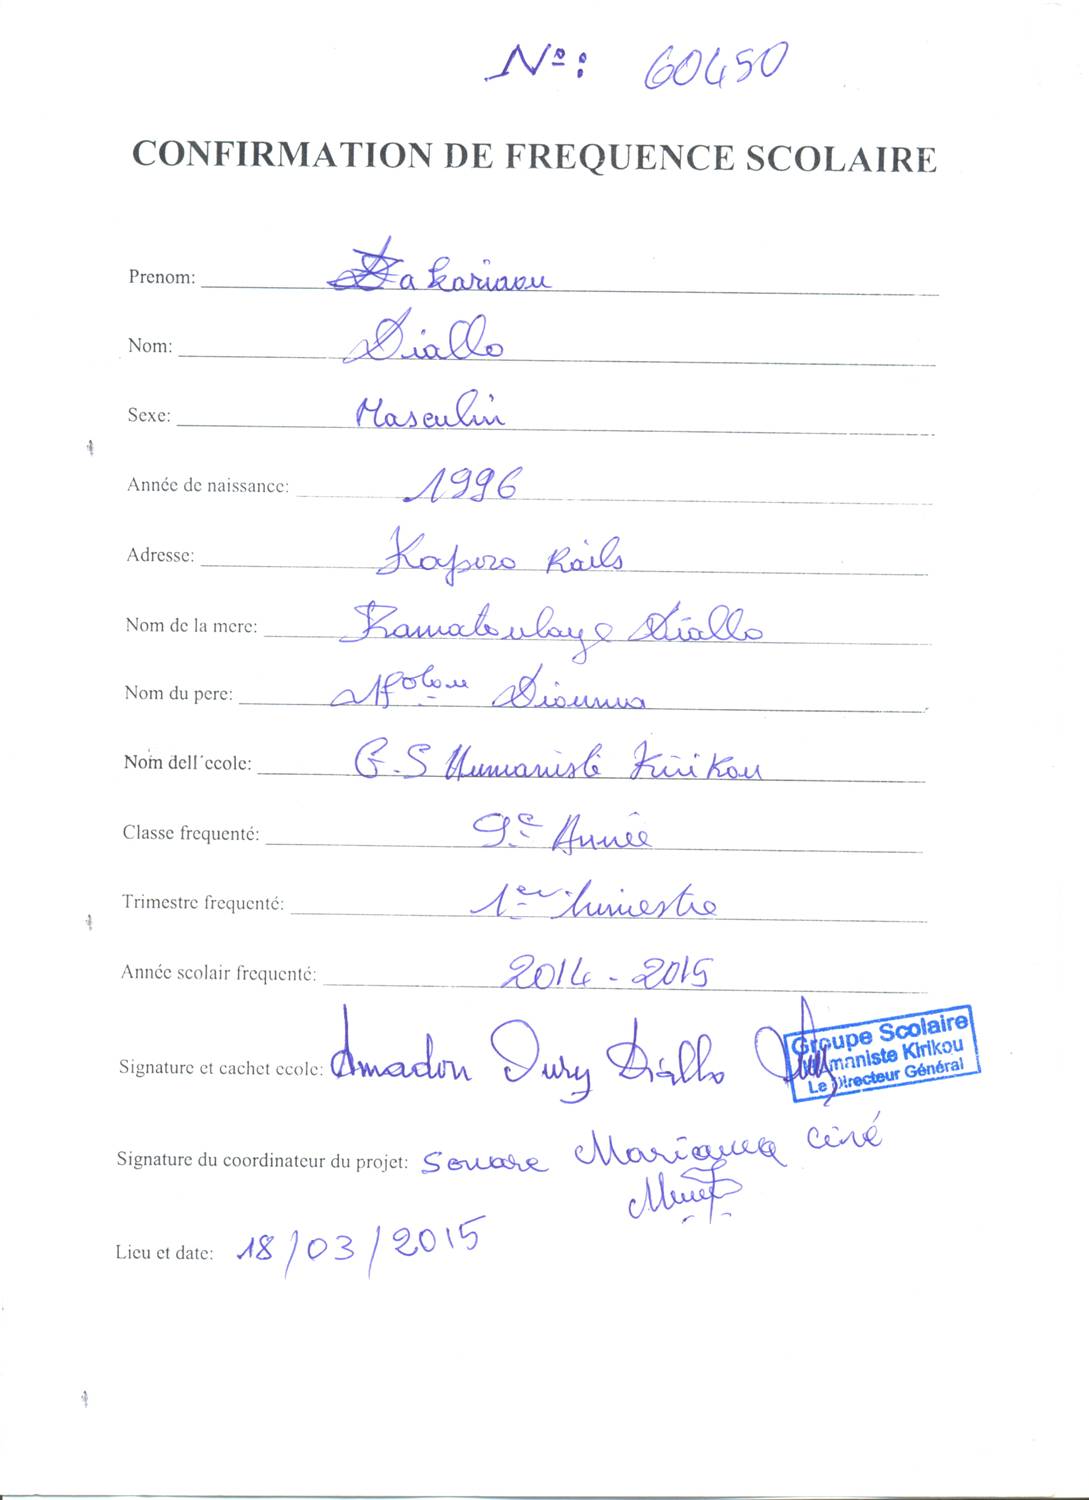 Nº: 60450
CONFIRMATION DE FREQUENCE SCOLAIRE
Prenom: Zakariaou
Nom: Diallo
Sexe: Masculin
Année de naissance: 1996
Adresse: Kaporo Rails
Nom de la mere: Ramatoulaye Diallo
Nom du pere: Diouma
Nom dell´ecole: G.S Humaniste Kirikou
Classe frequenté: 9e Année
Trimestre frequenté: 1er trimestre
Année scolair frequenté: 2014 - 2015
Groupe Scolaire
Humaniste Kirikou
Le Directeur Général
Signature et cachet ecole: Amadou Oury Diallo
Signature du coordinateur du projet: Souare Mariama Ciré
Lieu et date: 18/03/2015